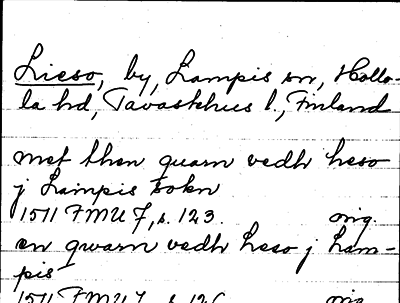 Lieso, by, Lampis sn, Hollo-
la hd, Tavastehus l., Finland
met then quarn vedh heso
j Lampis sokn
1511 FMU 7, s. 123. orig.
en qwarn vedh heso j Lam-
pis
1511 FMU 7, s. 126 orig.